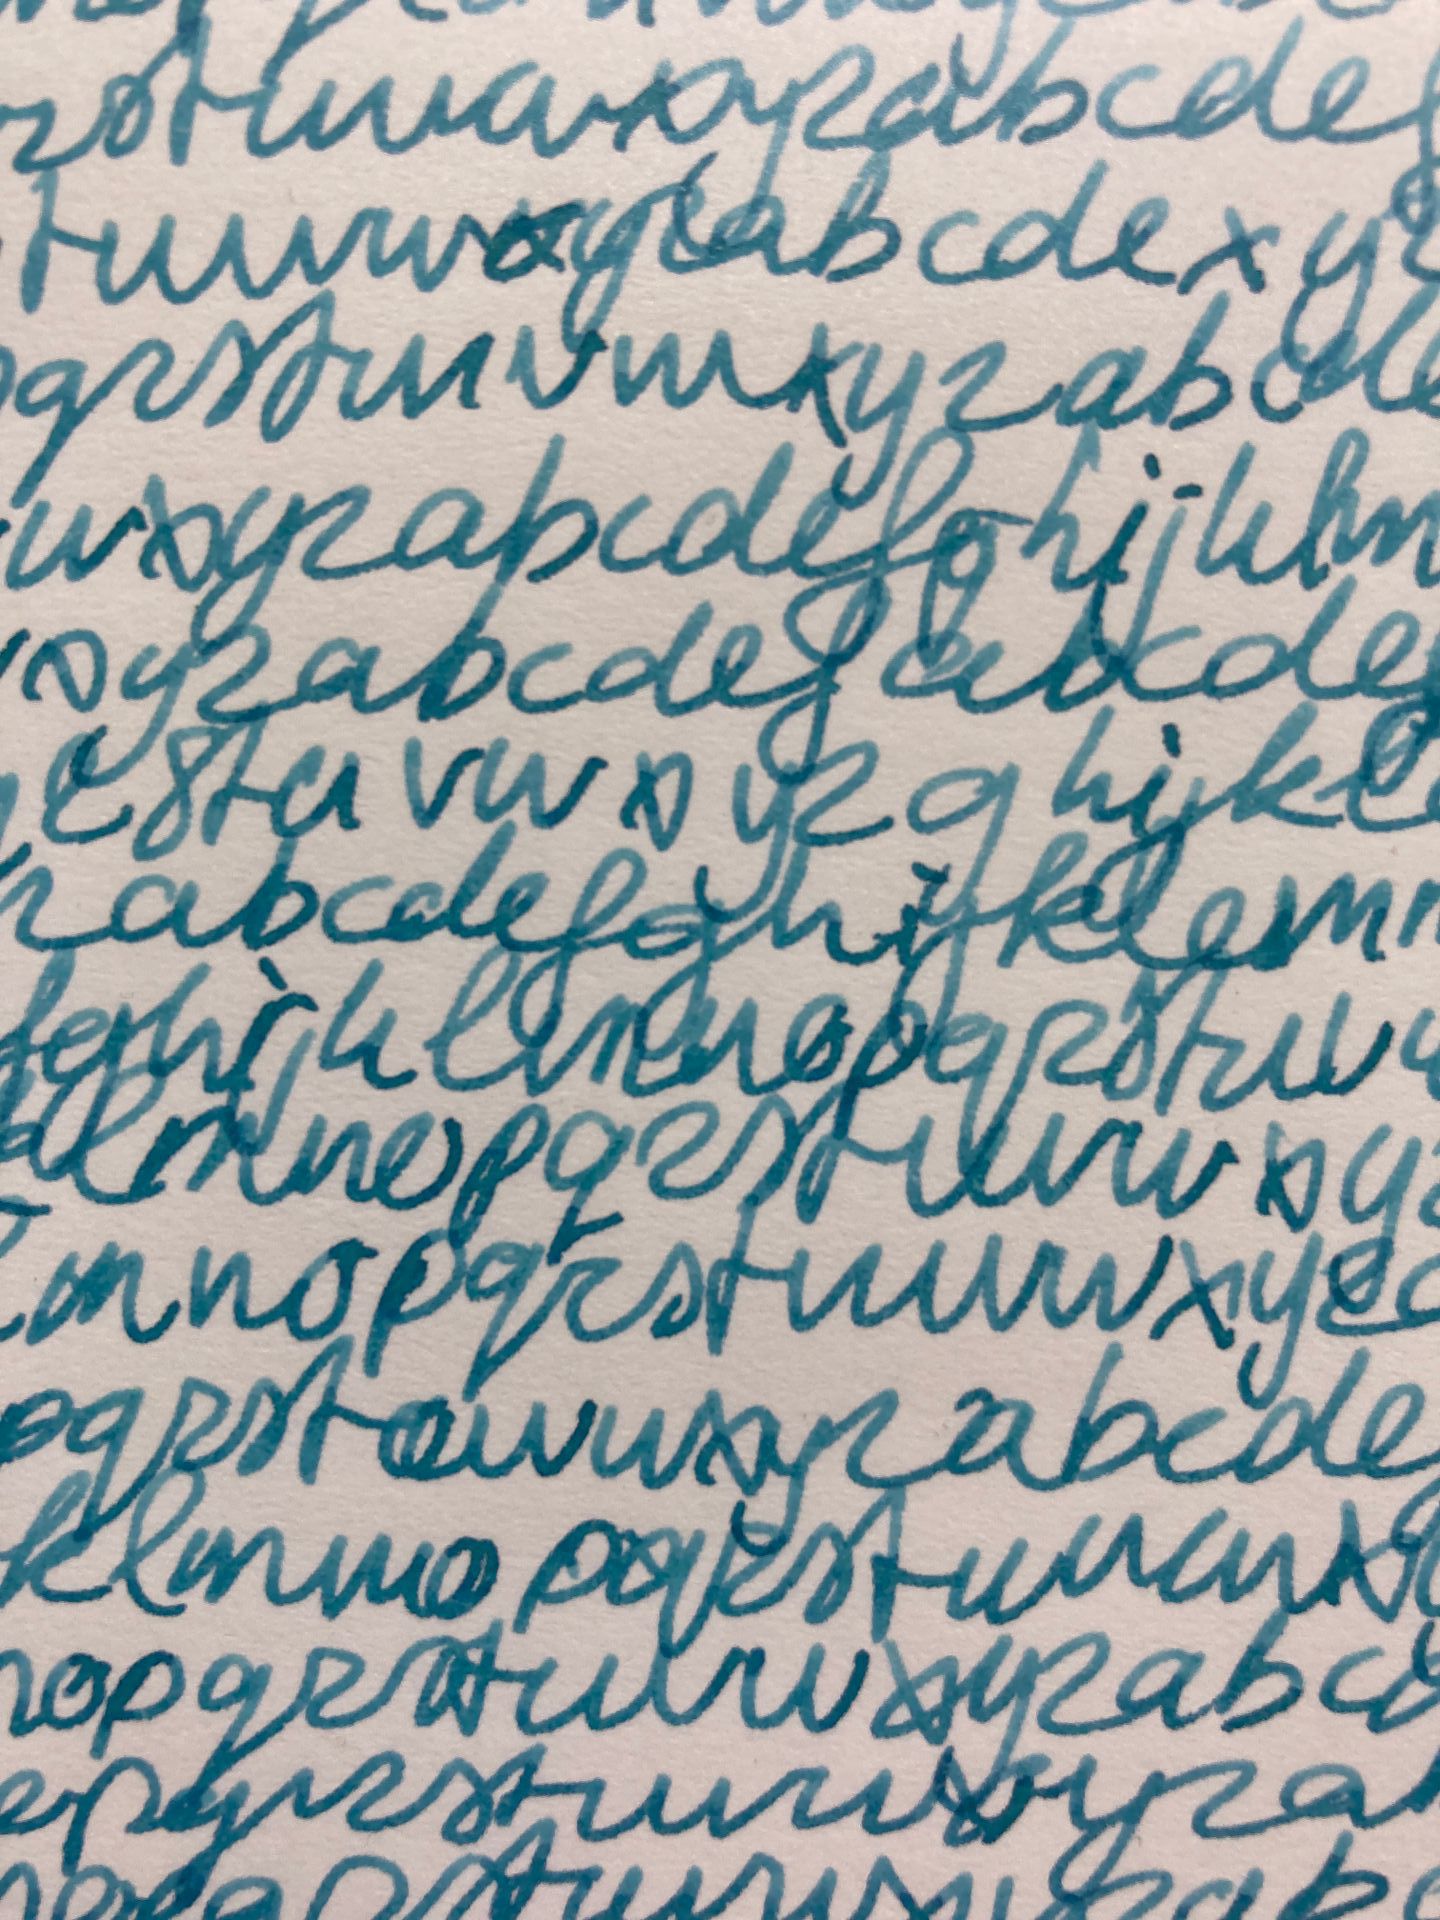 rstuvwxyzabcdef
tuvwxyzabcdexyz
pqrstuvwxyzabcde
wxyzabcdefghijklm
xyzabcdefabcdef
rstuvwxyzghijkl
zabcdefghijklmn
fghijklmnopqrstuv
lmnopqrstuvwxyz
lmnopqrstuvwxyz
opqrstuvwxyzabcde
klmnopqrstuvwxy
nopqrstuvwxyzabcd
opqrstuvwxyzab
nopqrstuvwxyzabc